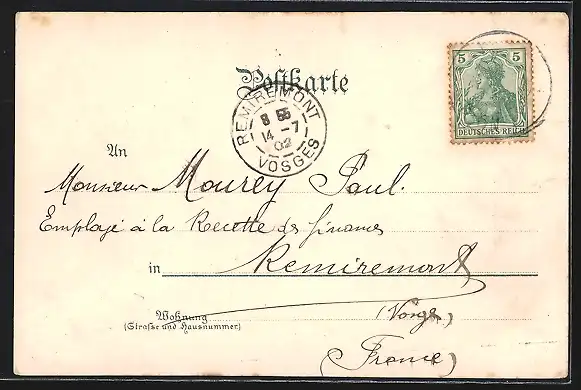 Postkarte
5 5
DEUTSCHES REICH
REMIREMONT
8 55
14 -7
02
VOSGES
An
Monsieur Mourey Paul.
Employé à la Recette des finances
in Remiremont
Wohnung
(Strasse und Hausnummer)
(Vosges)
(France)